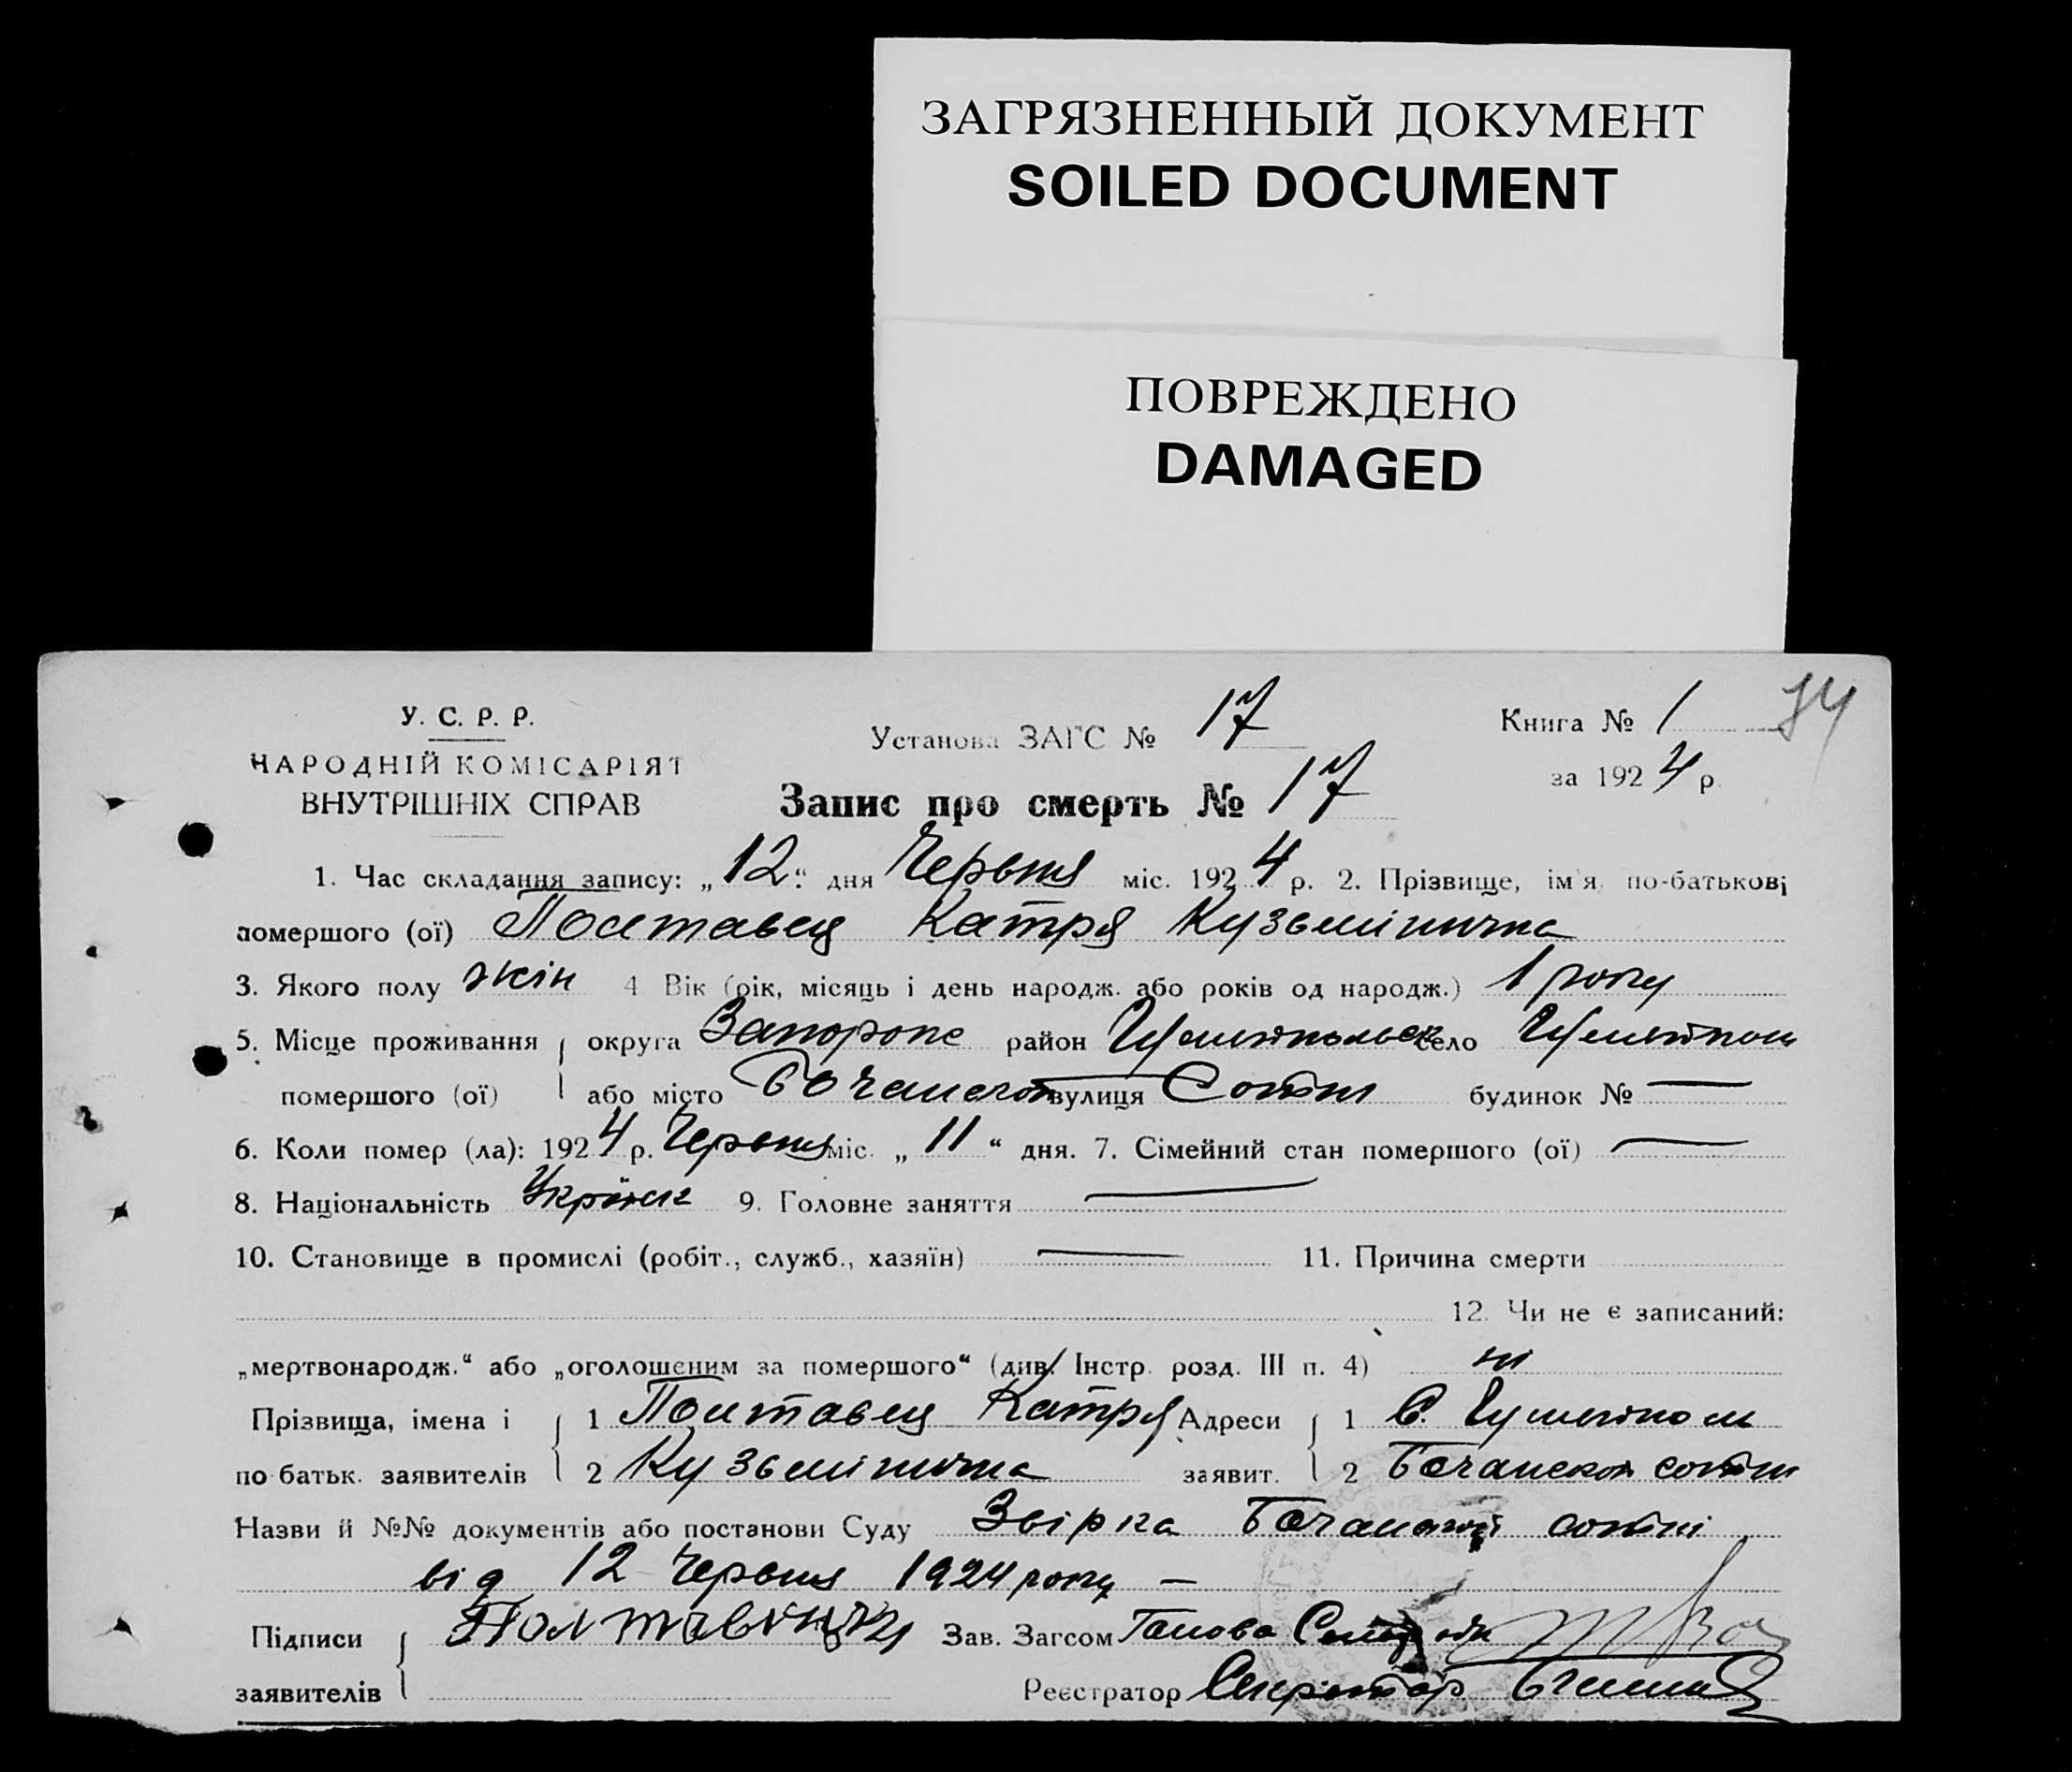 ЗАГРЯЗНЕННЫЙ ДОКУМЕНТ
SOILED DOCUMENT
ПОВРЕЖДЕНО
DAMAGED
У. С. Р. Р.
НАРОДНІЙ КОМІСАРІЯТ
ВНУТРІШНІХ СПРАВ
Установа ЗАГС № 17
Книга № 1
за 1924 р.
Запис про смерть № 17
1. Час складання запису: „12“ дня Червня міс. 1924 р. 2. Прізвище, ім'я, по-батькові
помершого (ої) Полтавец Катря Кузьмінична
3. Якого полу жін 4 Вік (рік, місяць і день народж. або років од народж.) 1 року
5. Місце проживання округа Запорож район село
помершого (ої) або місто вулиця Сотни будинок № —
6. Коли помер (ла): 1924 р. Червня міс. „11“ дня. 7. Сімейний стан помершого (ої) —
8. Національність 9. Головне заняття —
10. Становище в промислі (робіт., служб., хазяїн) — 11. Причина смерти
12. Чи не є записаний:
„мертвонародж.“ або „оголошеним за помершого“ (див. Інстр. розд. III п. 4) ні
Прізвища, імена і 1 Полтавец Катря Адреси 1 С.
по батьк. заявителів 2 Кузьмінична заявит. 2 сотни
Назви й №№ документів або постанови Суду сотні
від 12 Червня 1924 року —
Підписи Зав. Загсом Голова
заявителів Реєстратор Секретар